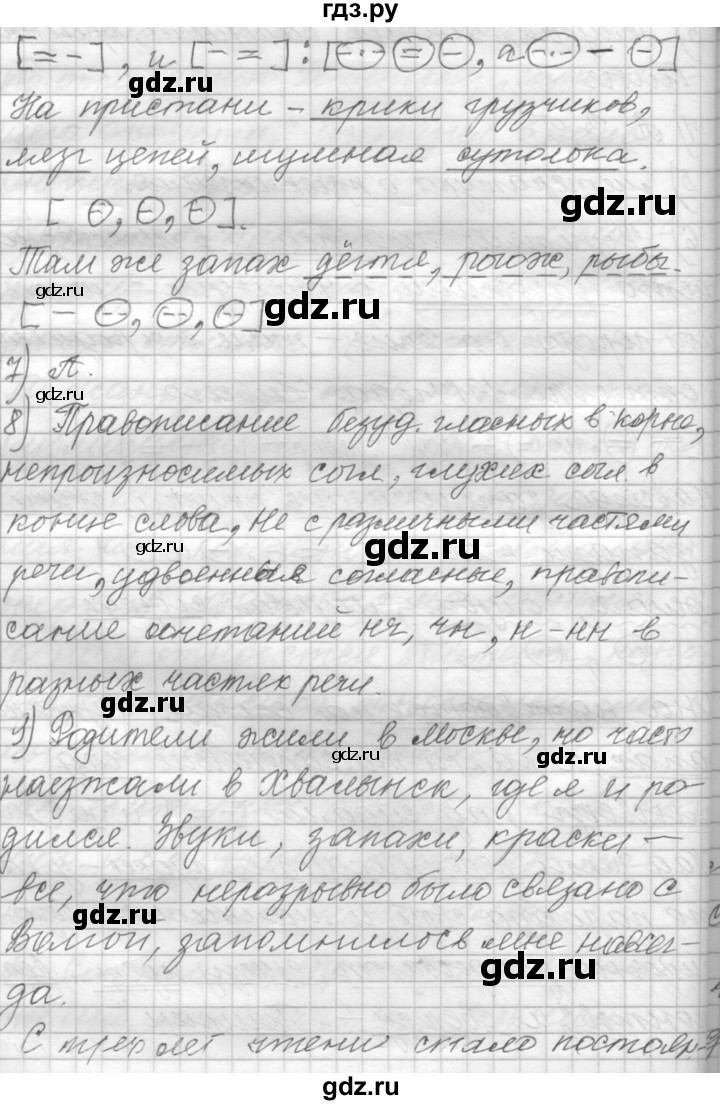 гдз.ру
[= -], и [- =]: [- · - = -, а - · - - -]
На пристани – крики грузчиков,
лязг цепей, шумная сутолока.
gdz.ru
[ -, -, - ].
Там же запах дёгтя, рогож, рыбы.
gdz.ru
gdz.ru
[ - - -, - -, - ]
7) А.
gdz.ru
8) Правописание безуд. гласных в корне,
непроизносимых согл., глухих согл. в
конце слова, не с различными частями
gdz.ru
gdz.ru
речи, удвоенные согласные, правопи-
сание сочетаний нч, чн, н-нн в
разных частях речи.
gdz.ru
9) Родители жили в Москве, но часто
gdz.ru
gdz.ru
наезжали в Хвалынск, где я и ро-
дился. Звуки, запахи, краски –
все, что неразрывно было связано с
gdz.ru
Волгой, запомнилось мне навсег-
gdz.ru
да.
С трех лет чтение стало постоян-
gdz.ru